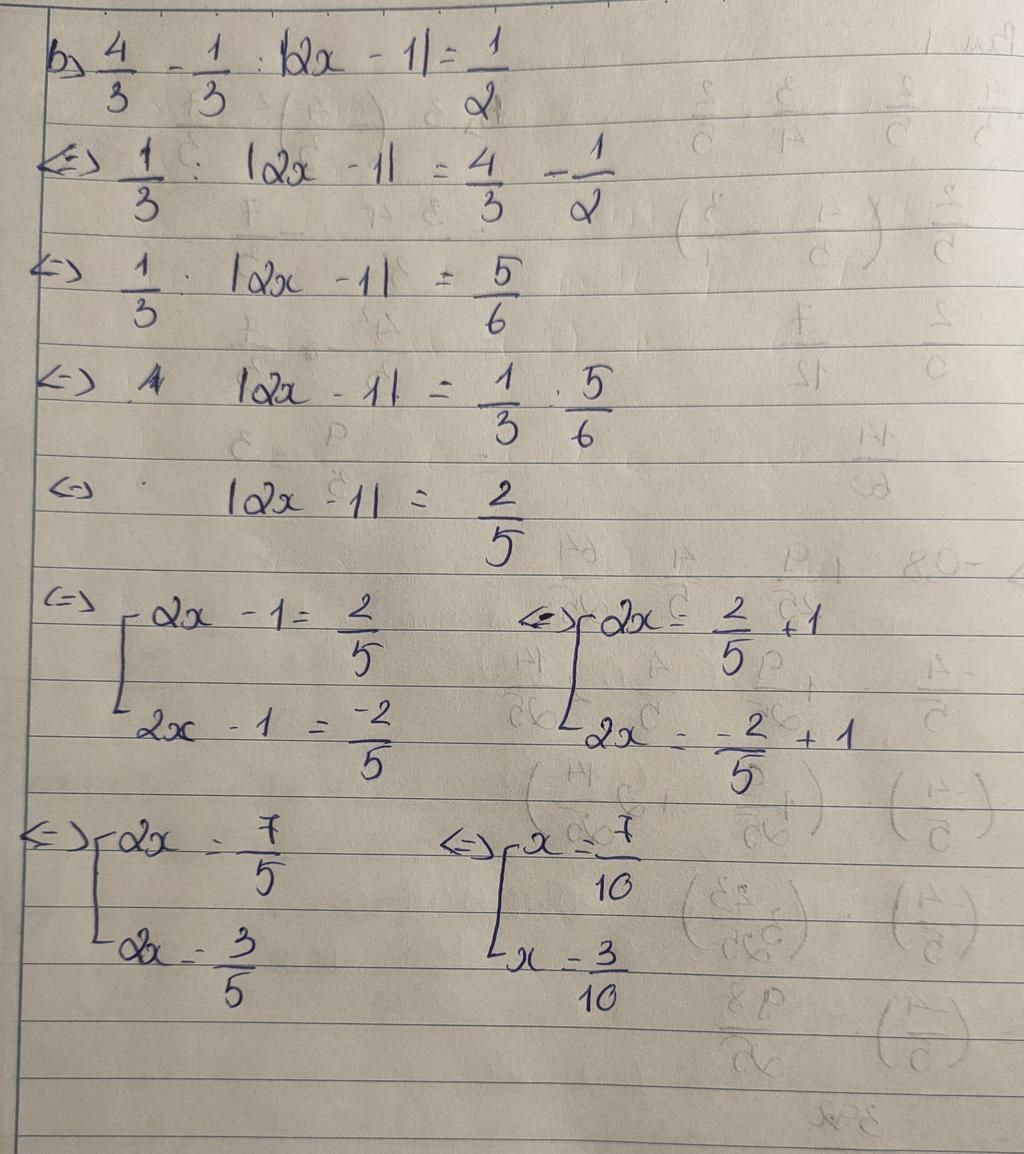 b) 4/3 - 1/3 : |2x - 1| = 1/2
<=> 1/3 : |2x - 1| = 4/3 - 1/2
<=> 1/3 : |2x - 1| = 5/6
<=> |2x - 1| = 1/3 . 5/6
<=> |2x - 1| = 2/5
<=> [ 2x - 1 = 2/5 <=> [ 2x = 2/5 + 1
2x - 1 = -2/5 2x = -2/5 + 1
<=> [ 2x = 7/5 <=> [ x = 7/10
2x = 3/5 x = 3/10